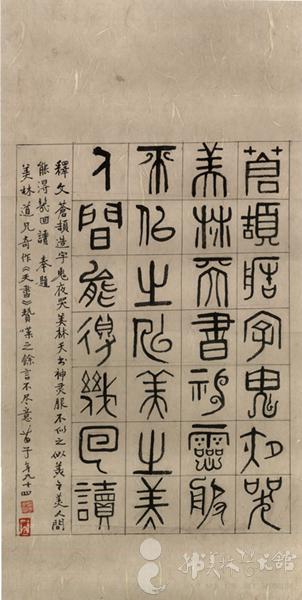 蒼頡造字鬼夜哭
美林天書神靈服
不似之似美之美
人間能得幾回讀
釋文 蒼頡造字鬼夜哭 美林天书神灵服 不似之似美之美 人間
能得幾回讀 奉題
美林道兄奇作《天書》贊嘆之餘言不盡意 苗子年九十四
韩美林艺术馆